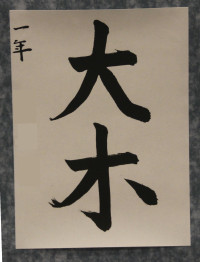 大木
一年